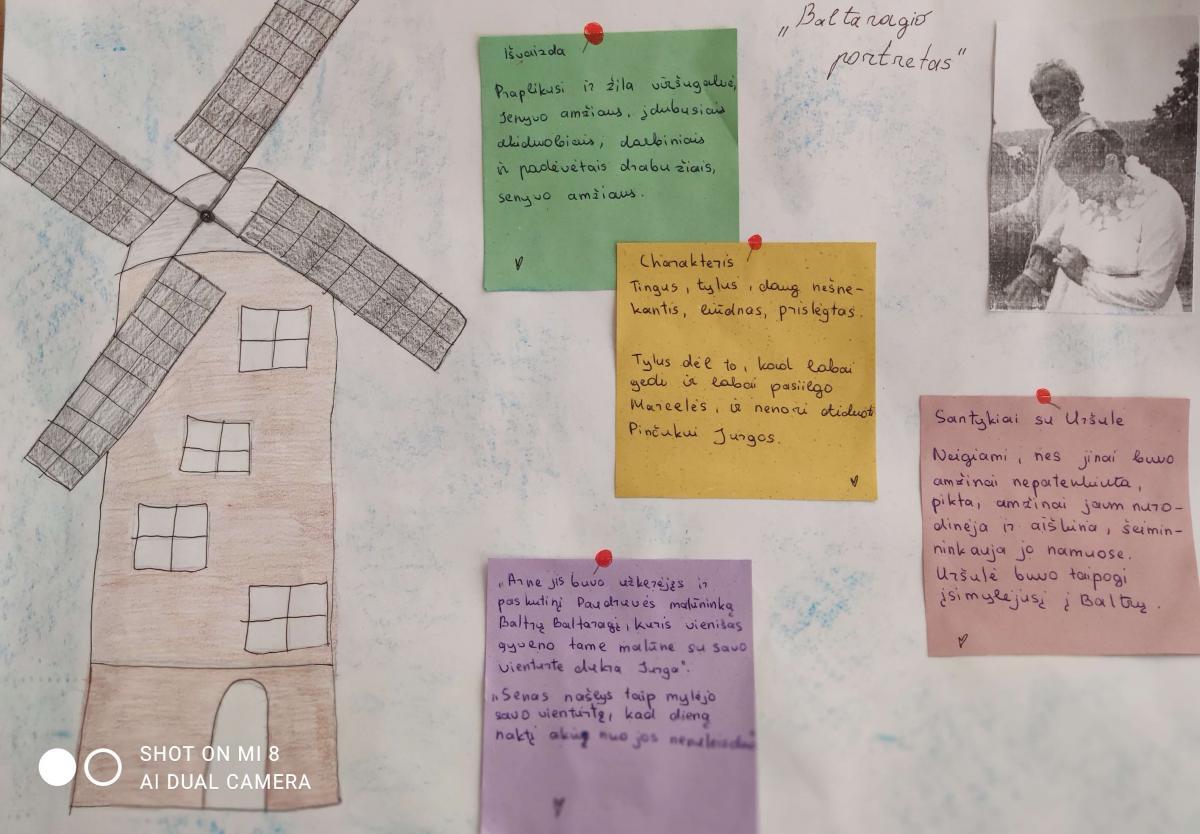 „Baltaragio
portretas"
Išvaizda
Praplikusi ir žila viršugalvė,
senyvo amžiaus, įdubusiais
akiduobiais, darbiniais
ir padėvėtais drabužiais,
senyvo amžiaus.
Charakteris
Tingus, tylus, daug nešne-
kantis, liūdnas, prislėgtas.
Tylus dėl to, kad labai
gedi ir labai pasiilgo
Marcelės, ir nenori atiduoti
Pinčukui Jurgos.
Santykiai su Uršule
Neigiami, nes jinai buvo
amžinai nepatenkinta,
pikta, amžinai jam nuro-
dinėja ir aiškina, šeimin-
ninkauja jo namuose.
Uršulė buvo taipogi
įsimylėjusi į Baltrų.
„Ar ne jis buvo užkerėjęs ir
paskutinį Paudruvės malūninką
Baltrų Baltaragį, kuris vienišas
gyveno tame malūne su savo
vienturte dukra Jurga".
„Senas našlys taip mylėjo
savo vienturtę, kad dieną
naktį akių nuo jos nenuleisdavo
SHOT ON MI 8
AI DUAL CAMERA